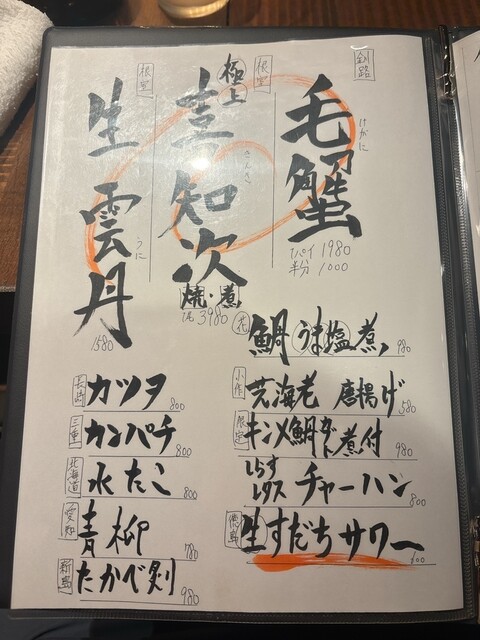 釧路
毛蟹
けがに
1パイ 1980
根室
極上
喜知次
きんき
焼・煮
3980
根室
生雲丹
うに
1580
鯛うま塩煮 980
芝海老 唐揚げ 580
限定
キンメ鯛かぶと煮付 980
しらす
レタス
チャーハン 800
徳島
生すだちサワー 600
長崎
カツヲ 800
三重
カンパチ 800
北海道
水たこ 800
愛知
青柳 780
新島
たかべ刺 980